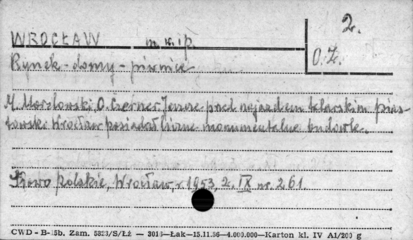 2.
WROCŁAW m. w. 1 p.
O. Z.
Rynek - domy - piwnice
M. Morelowski, O. Czerner Jeszcze przed najazdem tatarskim pias-
towski Wrocław posiadał liczne monumentalne budowle.
Słowo Polskie, Wrocław, r. 1953, 2. IX nr. 261.
CWD - B-35b. Zam. 5823/S/Łź — 2015—Łak—15.11.56—4.000.000—Karton kl. IV A1/200 g